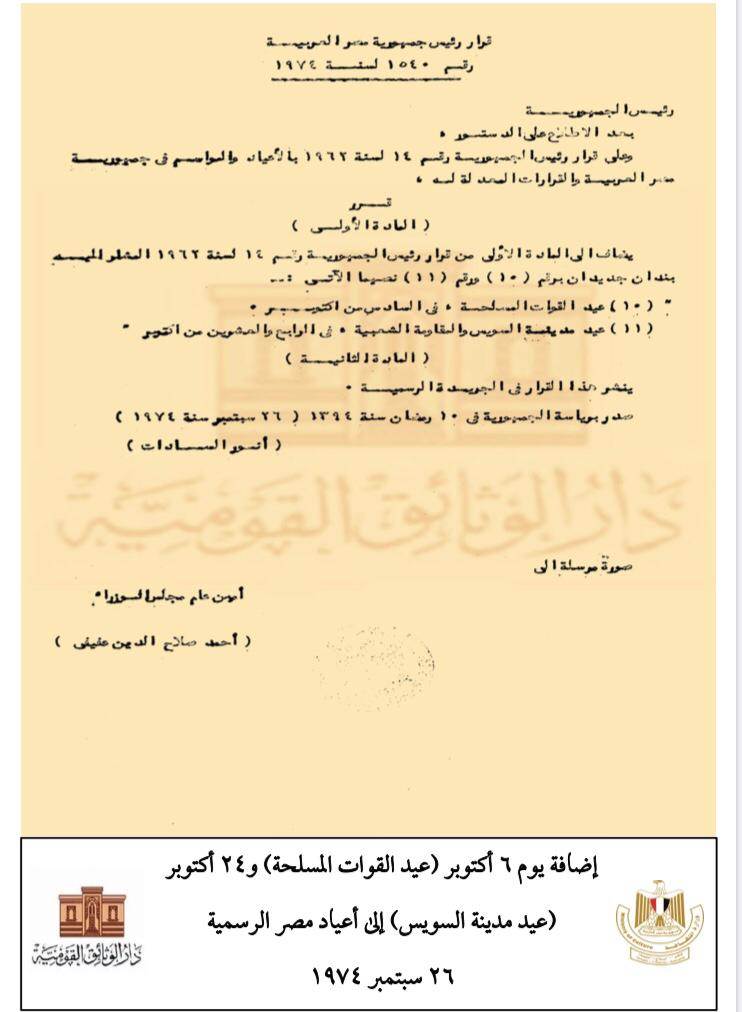 قرار رئيس جمهورية مصر العربية
رقم ١٥٤٠ لسنة ١٩٧٤
رئيس الجمهورية
بعد الاطلاع على الدستور ،
وعلى قرار رئيس الجمهورية رقم ١٤ لسنة ١٩٦٢ بالأعياد والمواسم فى جمهورية
مصر العربية والقرارات المعدلة له ،
قرر
( المادة الأولى )
يضاف الى المادة الأولى من قرار رئيس الجمهورية رقم ١٤ لسنة ١٩٦٢ المشار اليه
بندان جديدان برقم (١٠) ورقم (١١) نصهما الآتى :ـ
" (١٠) عيد القوات المسلحة ، فى السادس من اكتوبر .
(١١) عيد مدينة السويس والمقاومة الشعبية ، فى الرابع والعشرين من اكتوبر "
( المادة الثانية )
ينشر هذا القرار فى الجريدة الرسمية .
صدر برياسة الجمهورية فى ١٠ رمضان سنة ١٣٩٤ ( ٢٦ سبتمبر سنة ١٩٧٤ )
( أنور السادات )
دار الوثائق القومية
صورة مرسلة الى
أمين عام مجلس الوزراء
( أحمد صلاح الدين عفيفى )
إضافة يوم ٦ أكتوبر (عيد القوات المسلحة) و٢٤ أكتوبر
(عيد مدينة السويس) إلى أعياد مصر الرسمية
٢٦ سبتمبر ١٩٧٤
دار الوثائق القومية
وزارة الثقافة
Ministry of culture